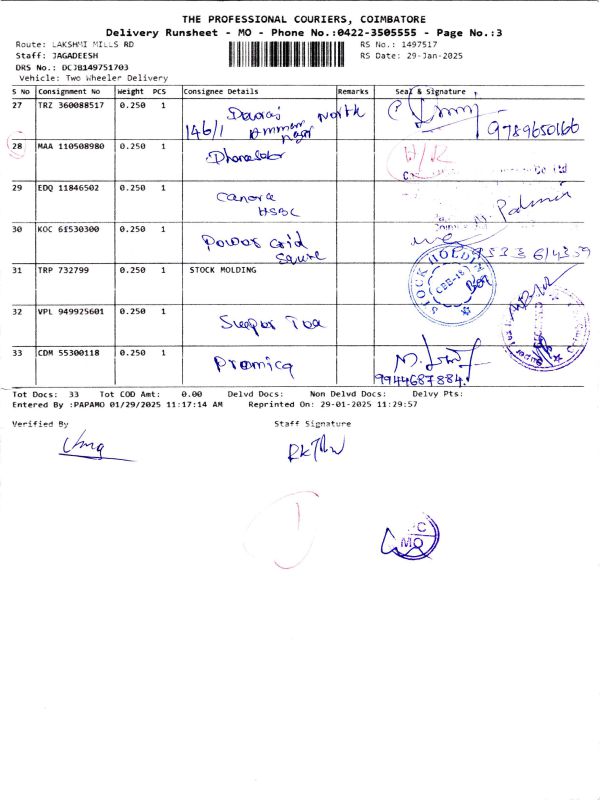 THE PROFESSIONAL COURIERS, COIMBATORE
Delivery Runsheet - MO - Phone No.:0422-3505555 - Page No.:3
Route: LAKSHMI MILLS RD RS No.: 1497517
Staff: JAGADEESH RS Date: 29-Jan-2025
DRS No.: DCJB149751703
Vehicle: Two Wheeler Delivery
S No Consignment No Weight PCS Consignee Details Remarks Seal & Signature
27 TRZ 360088517 0.250 1 North
146/1 9789650166
28 MAA 110508980 0.250 1 H/R
Co Ltd
29 EDQ 11846502 0.250 1 Canara
HSBC
30 KOC 61530300 0.250 1 Power Grid
31 TRP 732799 0.250 1 STOCK MOLDING STOCK HOLDIN
CBE-18
32 VPL 949925601 0.250 1 Super Tea
33 CDM 55300118 0.250 1 Promica
9944687884.
Tot Docs: 33 Tot COD Amt: 0.00 Delvd Docs: Non Delvd Docs: Delvy Pts:
Entered By :PAPAMO 01/29/2025 11:17:14 AM Reprinted On: 29-01-2025 11:29:57
Verified By Staff Signature
MO